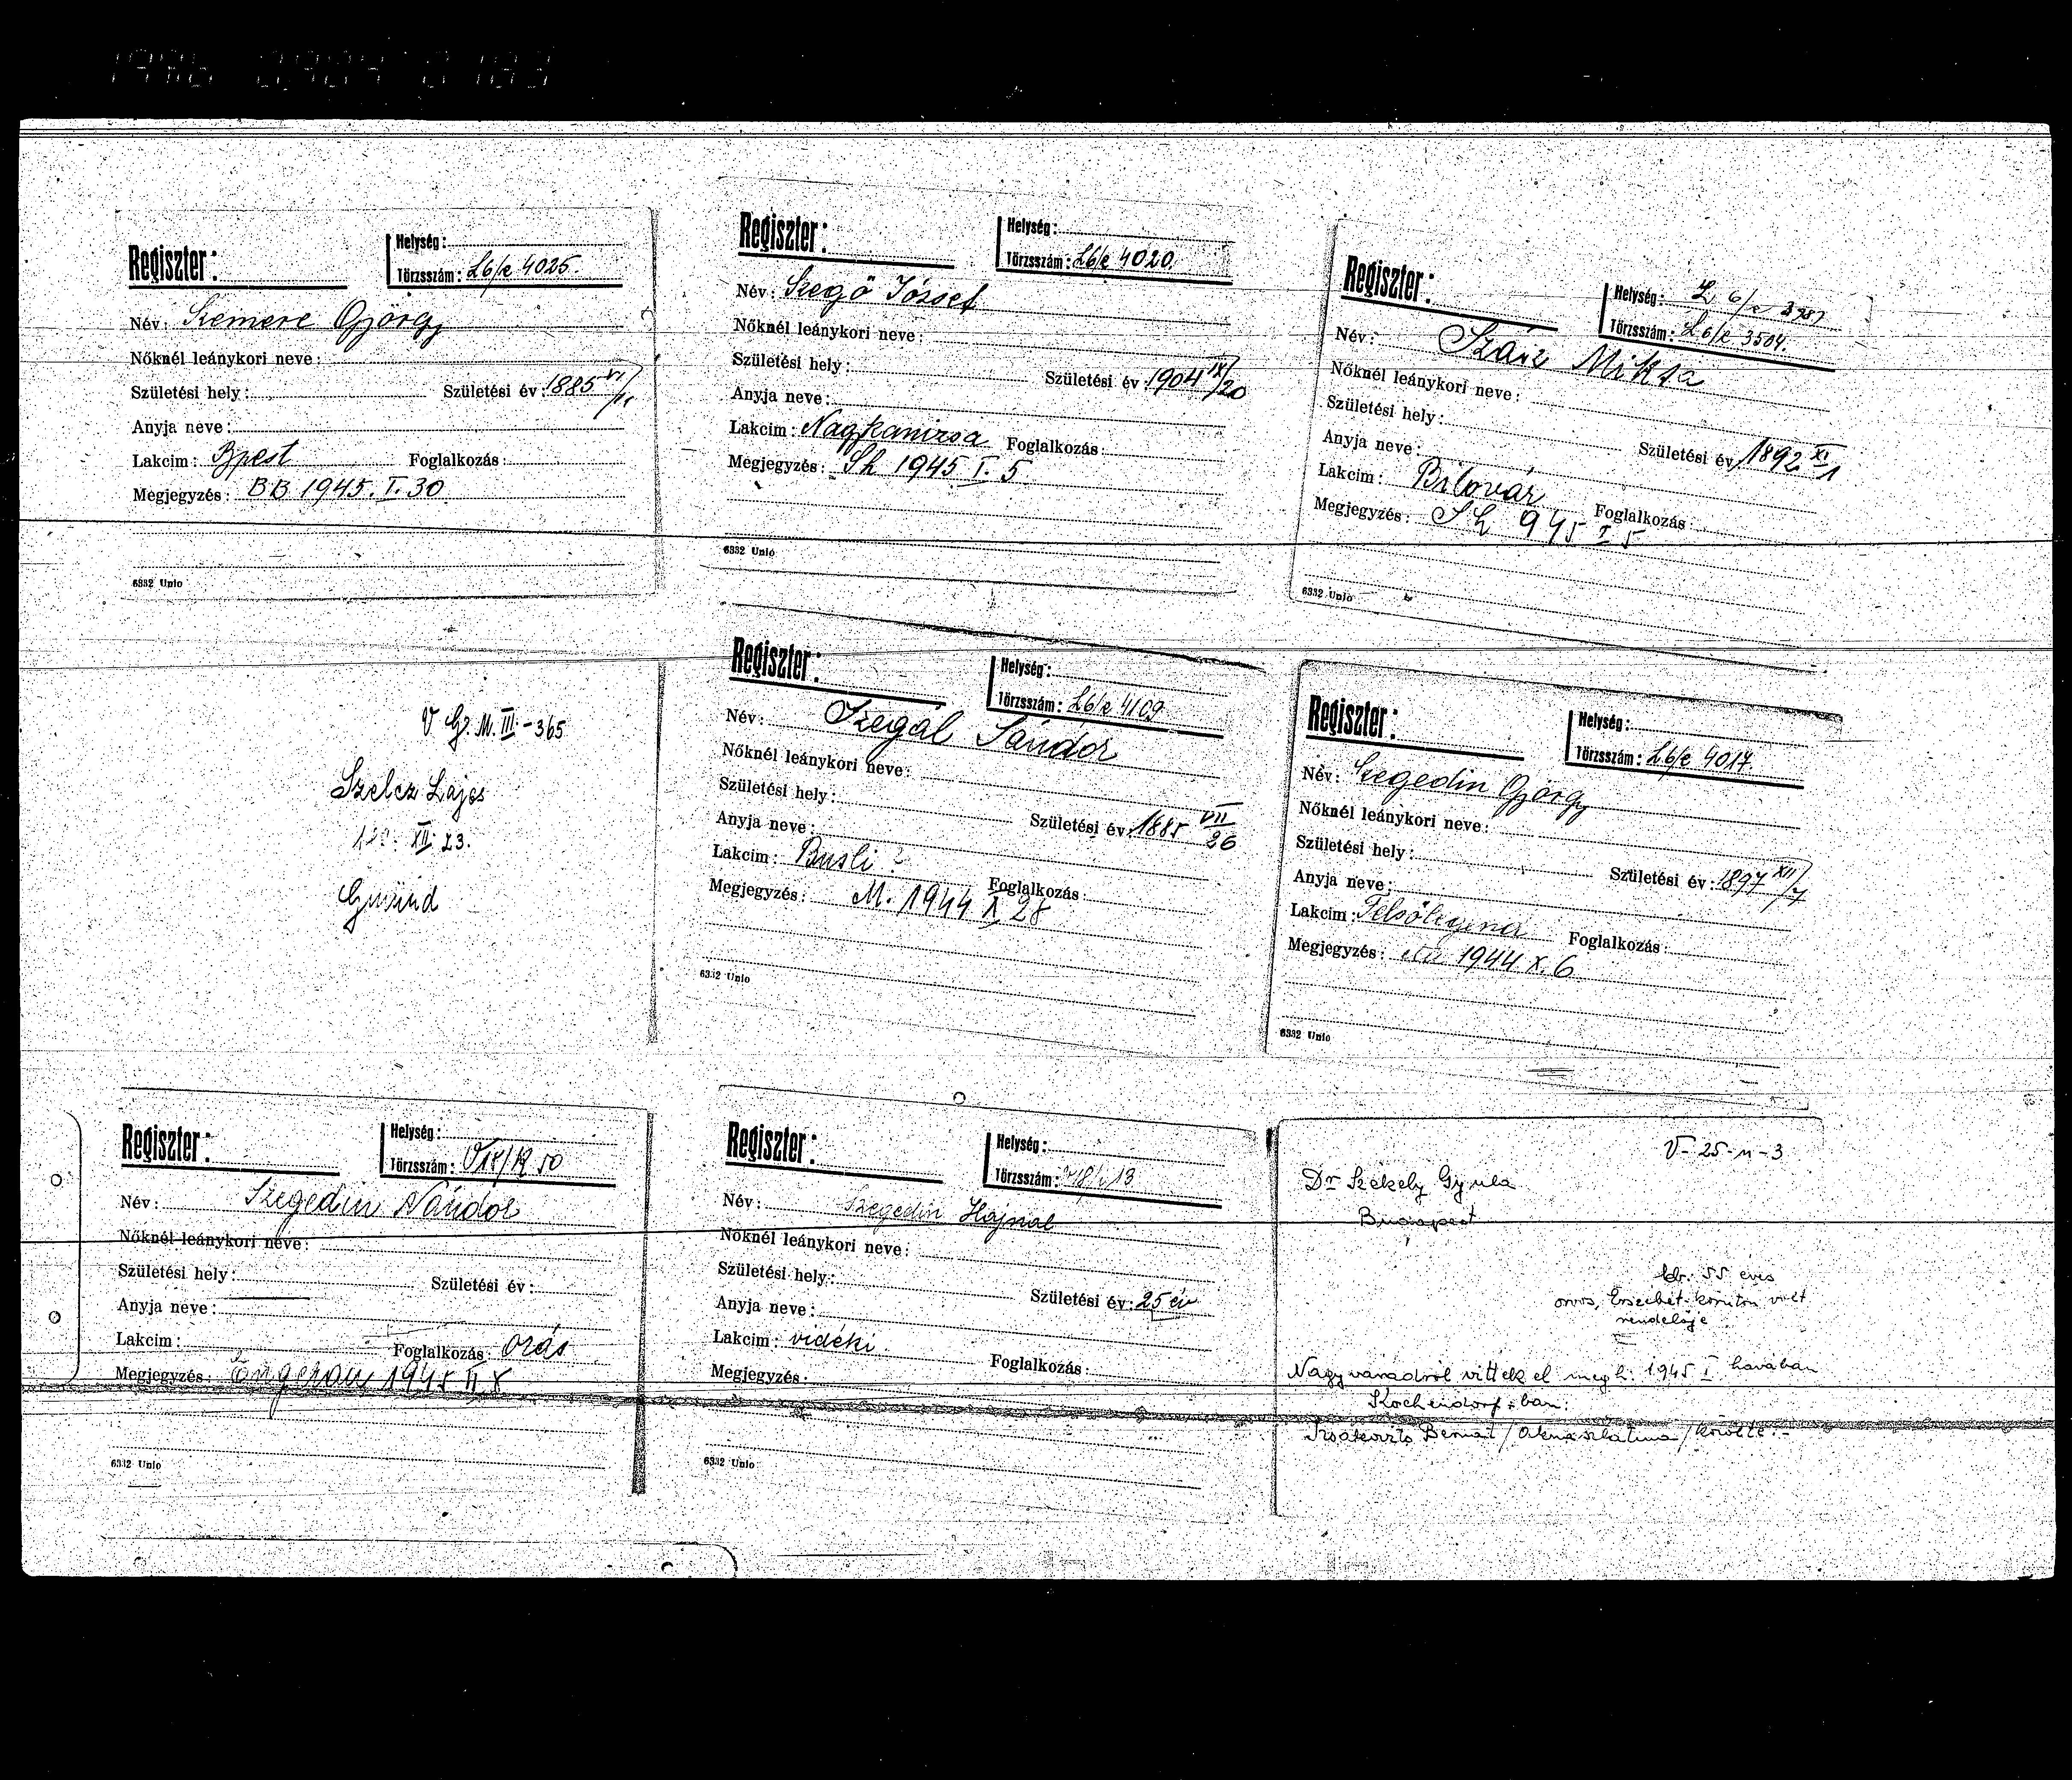 Regiszter:
Helység:
Törzsszám: L6/e 4025.
Név: Szemere György
Nőknél leánykori neve:
Születési hely: Születési év: 1885 VI/11
Anyja neve:
Lakcim: Bpest Foglalkozás:
Megjegyzés: BB 1945. I. 30
6332 Unio
Regiszter:
Helység:
Törzsszám: L6/e 4020.
Név: Szegő József
Nőknél leánykori neve:
Születési hely: Születési év: 1904 IX/20
Anyja neve:
Lakcim: Nagykanizsa Foglalkozás:
Megjegyzés: Sh 1945 I. 5
6332 Unio
Regiszter:
Helység: L 6/e
Törzsszám: L6/e 3504.
Név: Miksa
Nőknél leánykori neve:
Születési hely:
Születési év 1892 XI 1
Anyja neve:
Lakcim: Bilovár Foglalkozás:
Megjegyzés: Sh 945 I 5
6332 Unio
V Gz. M. III.-365
Szelcz Lajos
XII. 23.
Gmünd
Regiszter:
Helység:
Törzsszám: L6/e 4109
Név: Szegál Sándor
Nőknél leánykori neve:
Születési hely:
Születési év: 1885 VII 26
Anyja neve:
Lakcim: Busli ? Foglalkozás:
Megjegyzés: M. 1944 X 28
6332 Unio
Regiszter:
Helység:
Törzsszám: L6/e 4017.
Név: Szegedin György
Nőknél leánykori neve:
Születési hely: Születési év: 1897 XII/7
Anyja neve:
Lakcim: Foglalkozás:
Megjegyzés: 1944 X. 6
6332 Unio
Regiszter:
Helység:
Törzsszám: 50
Név: Szegedin Nándor
Nőknél leánykori neve:
Születési hely: Születési év:
Anyja neve:
Lakcim: Foglalkozás: órás
Megjegyzés: Engerau 1945
6332 Unio
Regiszter:
Helység:
Törzsszám: 13
Név: Szegedin Hajnal
Nőknél leánykori neve:
Születési hely: Születési év: 25 év
Anyja neve:
Lakcim: vidéki Foglalkozás:
Megjegyzés:
6332 Unio
V-25-n-3
Dr Székely Gyula
Budapest
kb. 55 éves
orvos, Erzsébet-körúton volt
rendelője
Nagyváradról vitték el megh. 1945 I havában
Kochendorf-ban.
Bernát / Aknaszlatina / közölte.-